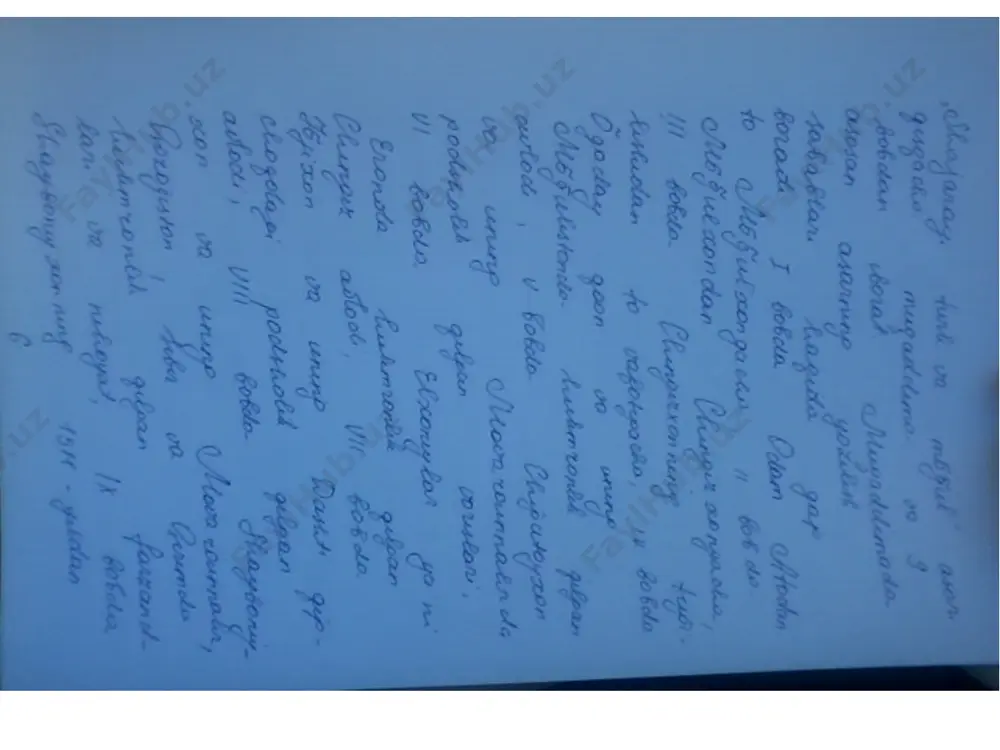 "Shajarayi turk va mo'g'ul" asari
muqaddima va 9
bobdan iborat. Muqaddimada
asosan asarning yozilish
sabablari haqida gap
boradi. I bobda Odam Atodan
to Mo'g'ulxongacha, II bobda
Mo'g'ulxondan Chingizxongacha,
III bobda Chingizxonning tug'i-
lishidan to vafotigacha, IV bobda
O'gaday qoon va uning
Mo'g'ulistonda hukmronlik qilgan
avlodi, V bobda Chig'atoyxon
va uning Movarounnahrda
podsholik qilgan vorislari,
VI bobda Elxoniylar ya'ni
Eronda hukmronlik qilgan
Chingiz avlodi, VII bobda
Jo'jixon va uning Dashti qip-
choqdagi podsholik qilgan
avlodi, VIII bobda Shayboniy-
xon va uning Movarounnahr,
Qozog'iston, Qrimda
hukmronlik qilgan farzand-
lari va nihoyat, IX bobda
Shayboniyxonning 1511-yildan
6
FayllHub.uz